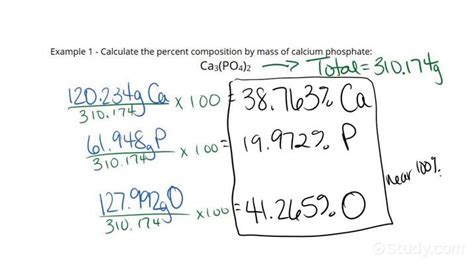 Example 1 - Calculate the percent composition by mass of calcium phosphate:
Ca₃(PO₄)₂ → Total = 310.174g
120.234g Ca
310.174
x 100 = 38.763% Ca
61.948g P
310.174g
x 100 = 19.972% P
127.992g O
310.174g
x 100 = 41.265% O
near 100%
Study.com